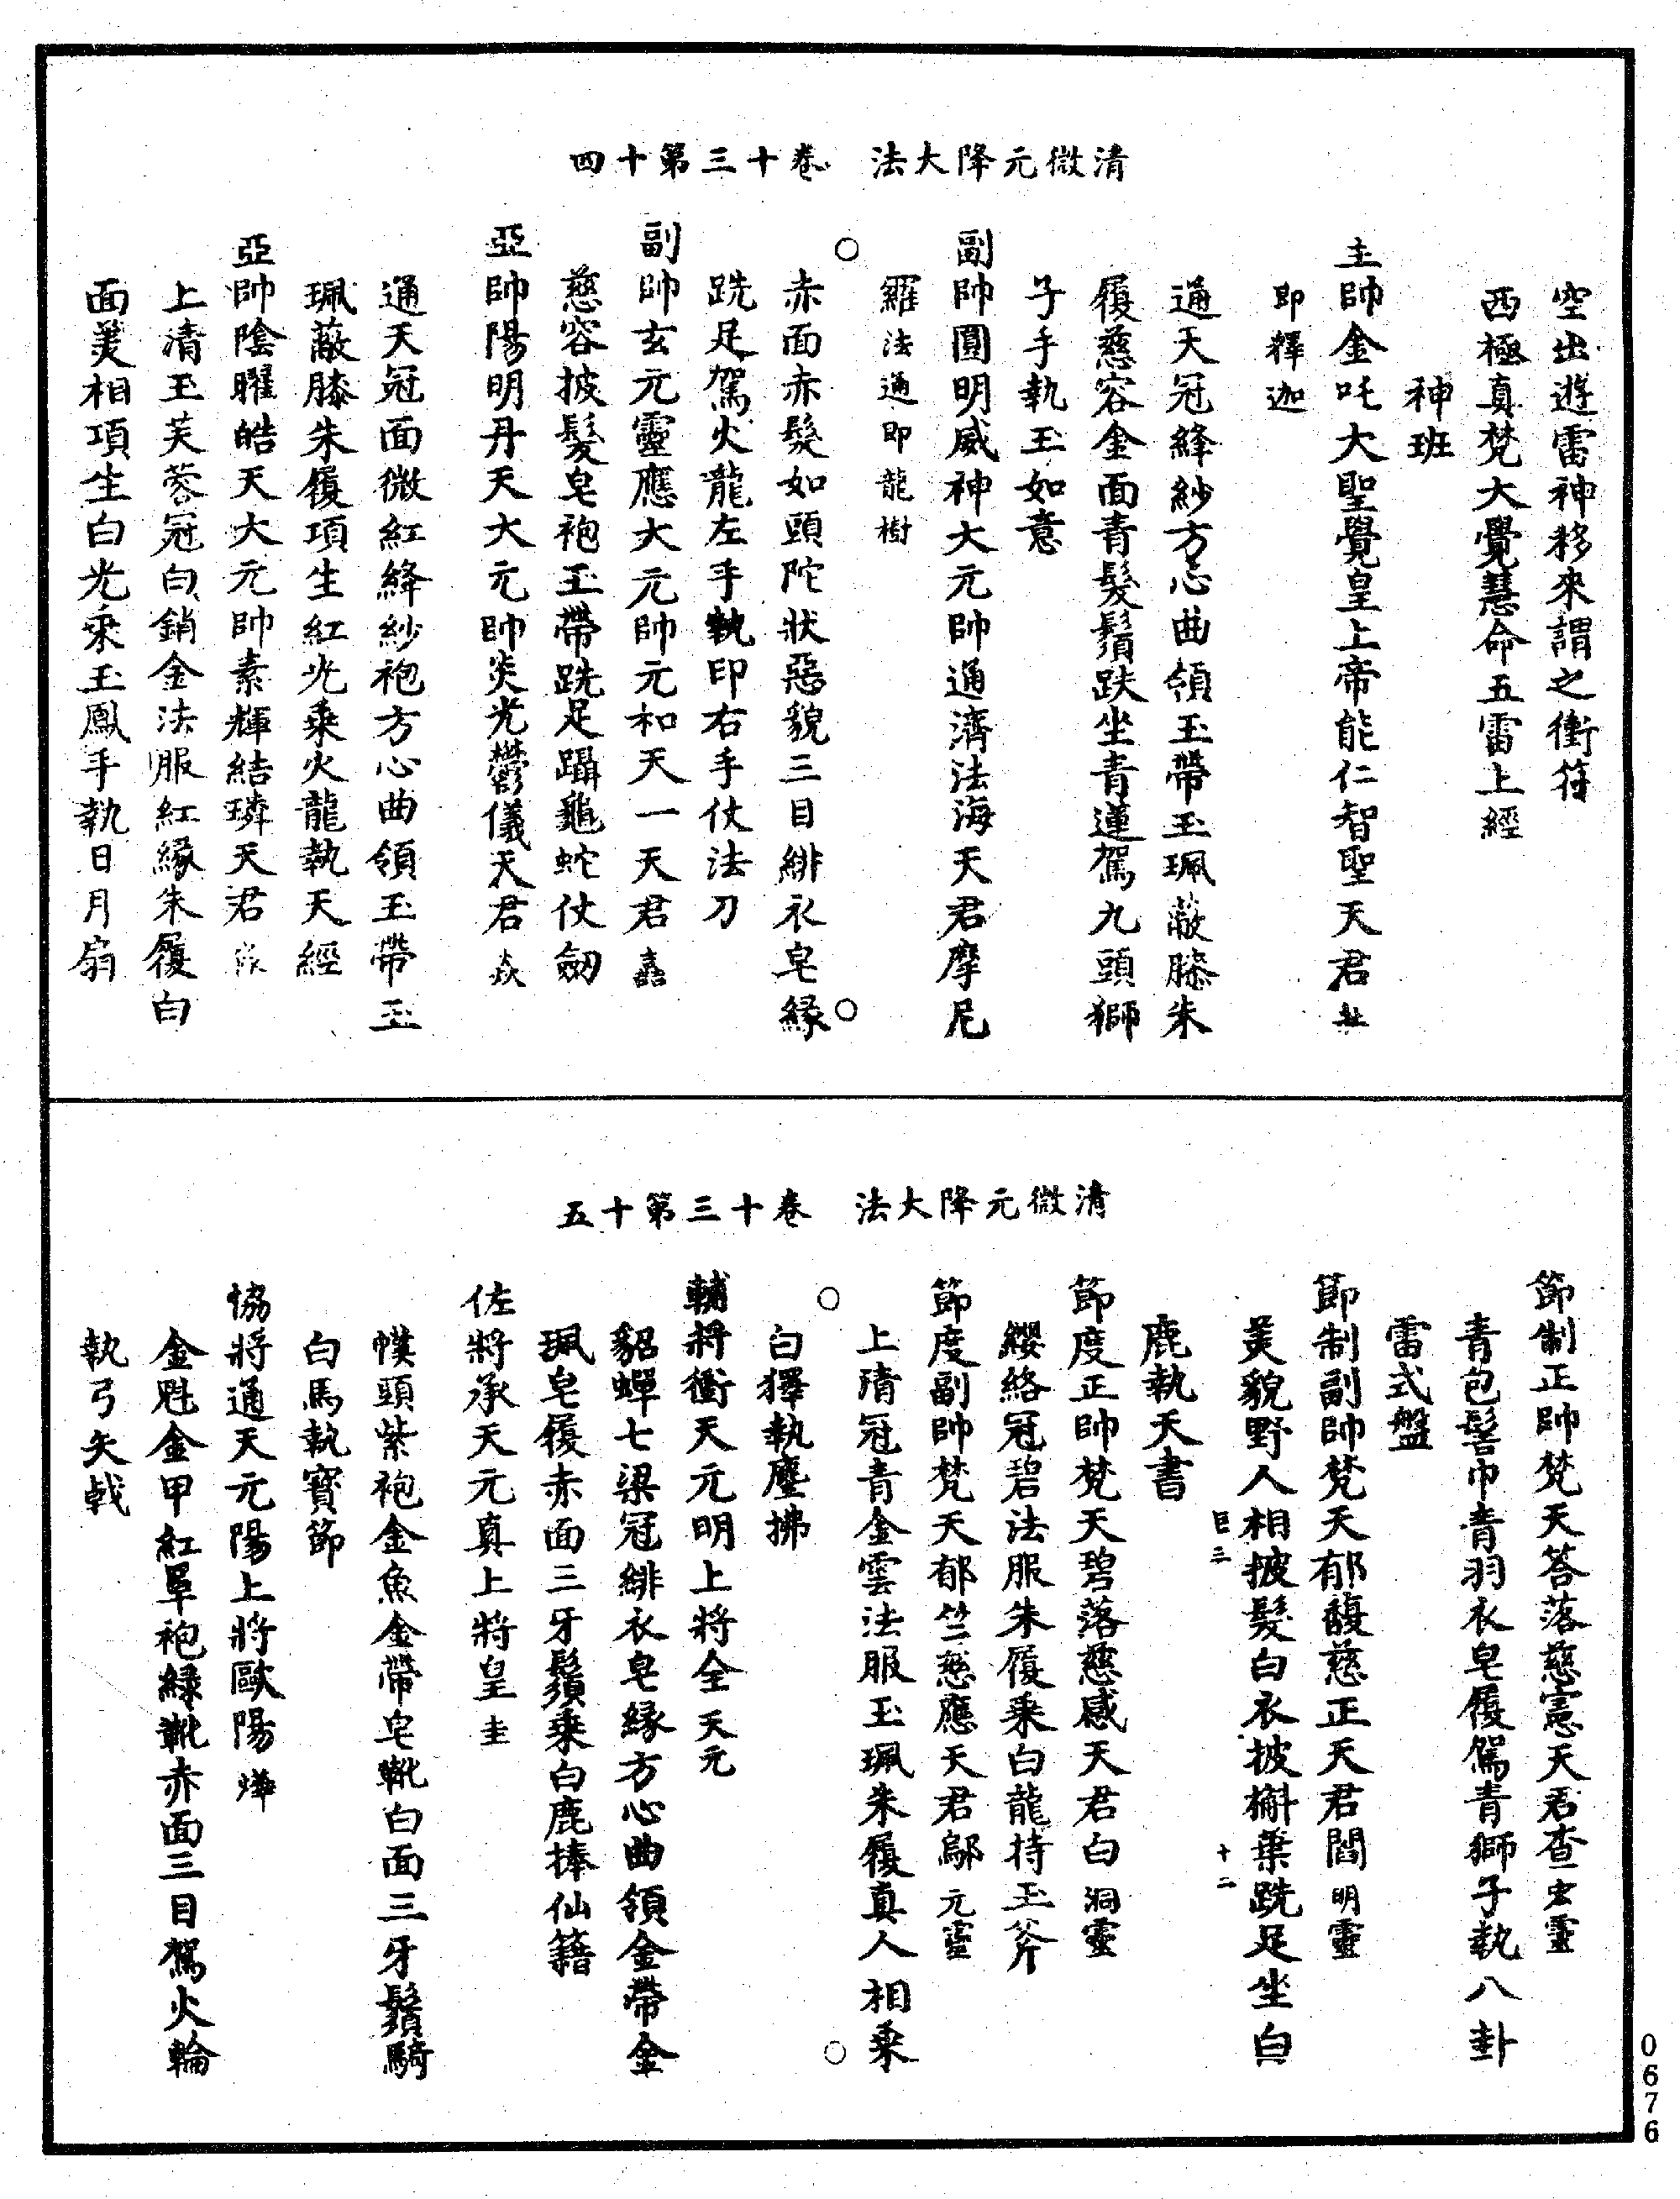 清微元降大法　卷十三第十四
空出遊雷神移來謂之衝符
西極真梵大覺慧命五雷上經
神班
主帥金吒大聖覺皇上帝能仁智聖天君
即釋迦
通天冠絳紗方心曲領玉帶玉珮蔽膝朱
履慈容金面青髮鬚趺坐青蓮駕九頭獅
子手執玉如意
副帥圓明威神大元帥通濟法海天君摩尼
羅法通即龍樹
赤面赤髮如頭陀狀惡貌三目緋衣皂緣
跣足駕火龍左手執印右手仗法刀
副帥玄元靈應大元帥元和天一天君
慈容披髮皂袍玉帶跣足躡龜蛇仗劒
亞帥陽明丹天大元帥炎光鬱儀天君焱
通天冠面微紅絳紗袍方心曲領玉帶玉
珮蔽膝朱履項生紅光乘火龍執天經
亞帥陰曜皓天大元帥素輝結璘天君
上清玉芙蓉冠白銷金法服紅緣朱履白
面美相項生白光乘玉鳳手執日月扇
清微元降大法　卷十三第十五
節制正帥梵天答落慈憲天君查宏靈
青包髻巾青羽衣皂履駕青獅子執八卦
雷式盤
節制副帥梵天郁馥慈正天君閻明靈
美貌野人相披髮白衣披槲葉跣足坐白
鹿執天書
巨三　十二
節度正帥梵天碧落慈感天君白洞靈
纓絡冠碧法服朱履乘白龍持玉斧
節度副帥梵天郁竺慈應天君鄔元靈
上清冠青金雲法服玉珮朱履真人相乘
白獬執麈拂
輔將衝天元明上將全天元
貂蟬七梁冠緋衣皂緣方心曲領金帶金
珮皂履赤面三牙鬚乘白鹿捧仙籍
佐將承天元真上將皇圭
幞頭紫袍金魚金帶皂靴白面三牙鬚騎
白馬執寶節
協將通天元陽上將歐陽燁
金冠金甲紅罩袍綠靴赤面三目駕火輪
執弓矢戟
0676